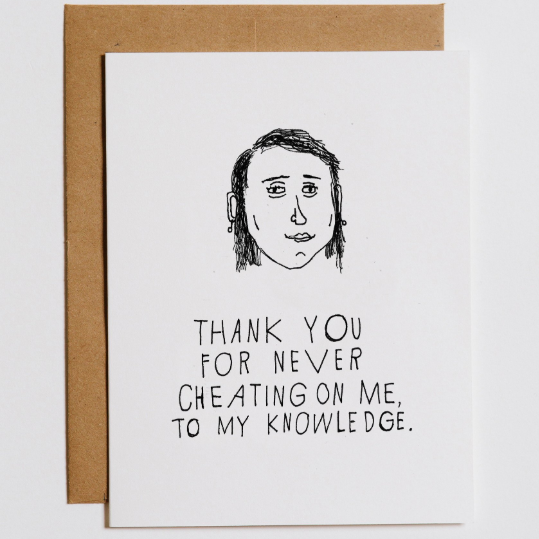 THANK YOU
FOR NEVER
CHEATING ON ME,
TO MY KNOWLEDGE.